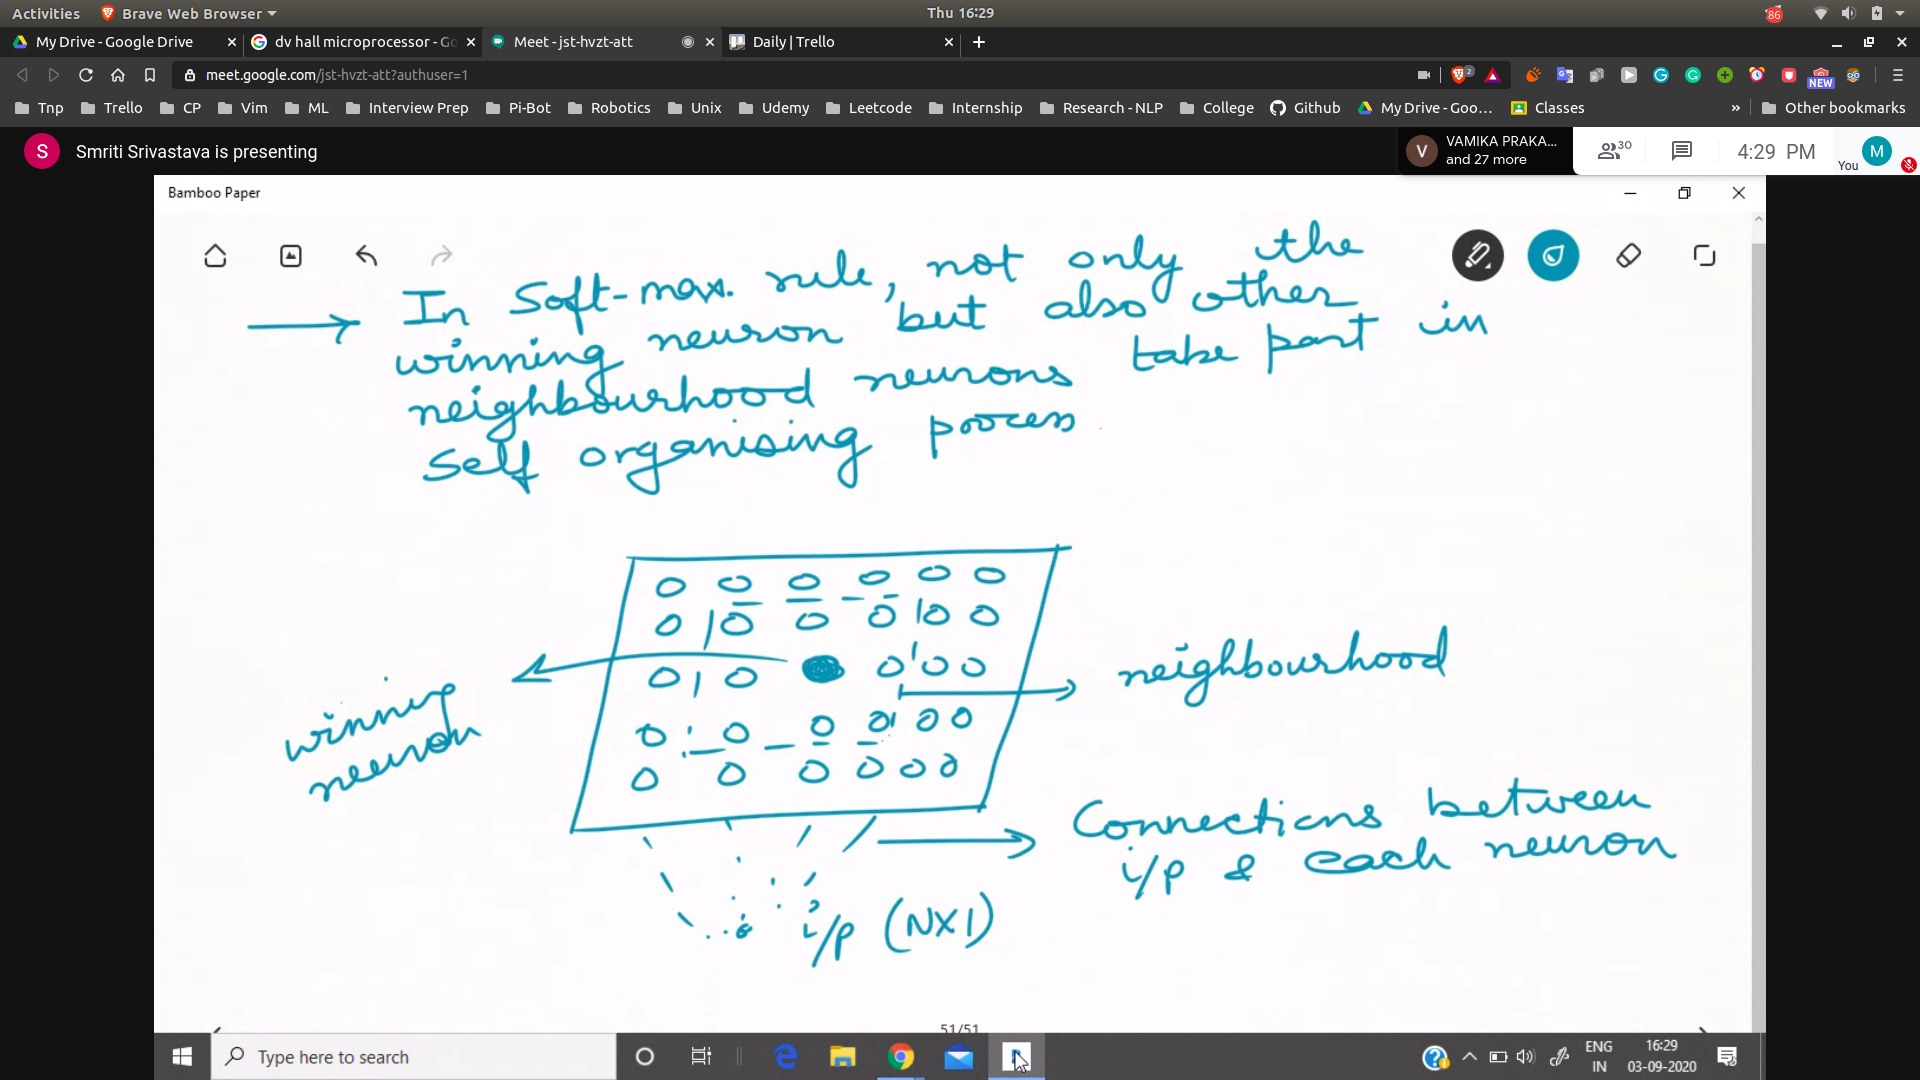 Activities Brave Web Browser Thu 16:29 86
My Drive - Google Drive dv hall microprocessor - Go Meet - jst-hvzt-att Daily | Trello
meet.google.com/jst-hvzt-att?authuser=1 2 NEW
Tnp Trello CP Vim ML Interview Prep Pi-Bot Robotics Unix Udemy Leetcode Internship Research - NLP College Github My Drive - Goo... Classes » Other bookmarks
S Smriti Srivastava is presenting V VAMIKA PRAKA... and 27 more 30 4:29 PM You M
Bamboo Paper
In Soft-max. rule, not only the
winning neuron but also other
neighbourhood neurons take part in
Self organising process
winning
neuron
neighbourhood
Connections between
i/p & each neuron
i/p (NX1)
51/51
Type here to search
ENG
IN
16:29
03-09-2020